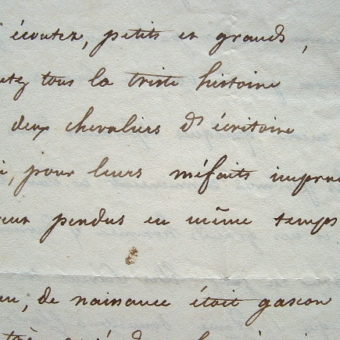 écoutez, petits et grands,
tez tous la triste histoire
deux chevaliers d'écritoire
i, pour leurs méfaits impru
pendus en même temps
, de naissance était gascon